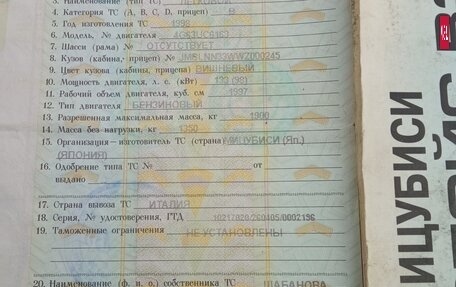 3. Наименование (тип ТС) ЛЕГКОВОЙ
4. Категория ТС (A, B, C, D, прицеп) B
5. Год изготовления ТС 1998
6. Модель, № двигателя
7. Шасси (рама) № ОТСУТСТВУЕТ
8. Кузов (кабина, прицеп) №
9. Цвет кузова (кабины, прицепа) ВИШНЕВЫЙ
10. Мощность двигателя, л. с. (кВт)
11. Рабочий объем двигателя, куб. см 1997
12. Тип двигателя БЕНЗИНОВЫЙ
13. Разрешенная максимальная масса, кг 1900
14. Масса без нагрузки, кг 1350
15. Организация—изготовитель ТС (страна) МИЦУБИСИ (Яп.)
(ЯПОНИЯ)
16. Одобрение типа ТС № от
выдано
17. Страна вывоза ТС ИТАЛИЯ
18. Серия, № удостоверения, ГТД
19. Таможенные ограничения НЕ УСТАНОВЛЕНЫ
20. Наименование (ф. и. о.) собственника ТС ШАБАНОВА
ИЦУБИСИ